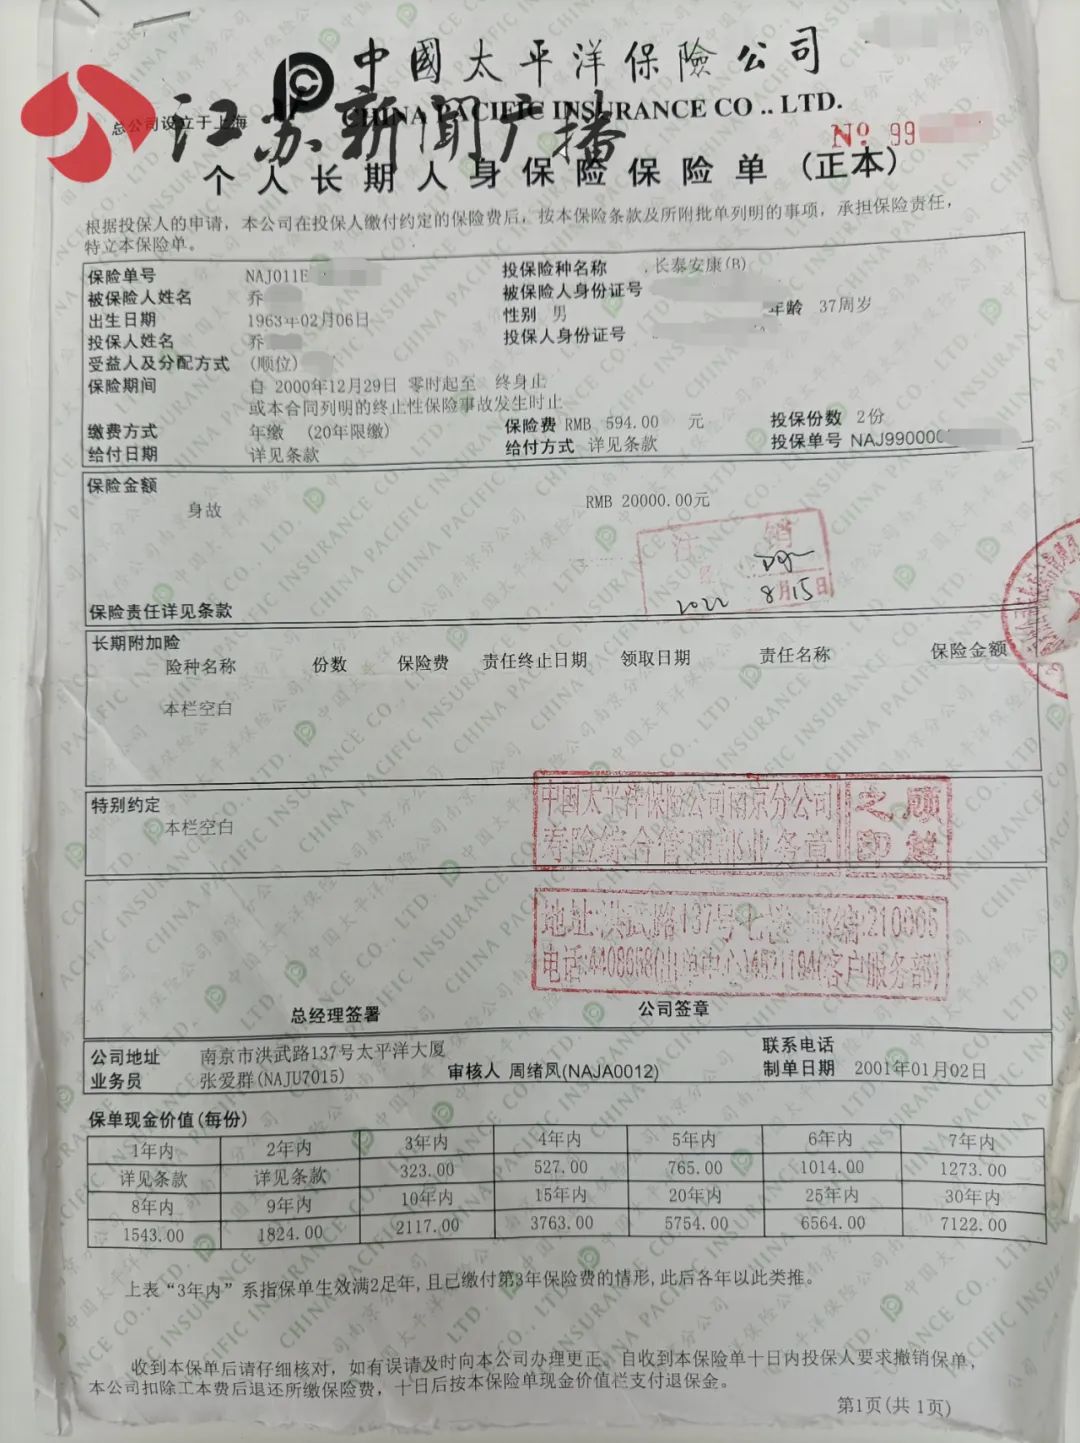 中國太平洋保險公司
CHINA PACIFIC INSURANCE CO.., LTD.
总公司设立于上海
江苏新闻广播
No. 99
个人长期人身保险保险单 (正本)
根据投保人的申请，本公司在投保人缴付约定的保险费后，按本保险条款及所附批单列明的事项，承担保险责任，
特立本保险单。
保险单号 NAJ011E 投保险种名称 长泰安康(B)
被保险人姓名 乔 被保险人身份证号
出生日期 1963年02月06日 性别 男 年龄 37周岁
投保人姓名 乔 投保人身份证号
受益人及分配方式 (顺位)
保险期间 自 2000年12月29日 零时起至 终身止
或本合同列明的终止性保险事故发生时止
缴费方式 年缴 (20年限缴) 保险费 RMB 594.00 元 投保份数 2份
给付日期 详见条款 给付方式 详见条款 投保单号 NAJ990000
保险金额
身故 RMB 20000.00元
注 销
2022 8月15日
保险责任详见条款
长期附加险
险种名称 份数 保险费 责任终止日期 领取日期 责任名称 保险金额
本栏空白
特别约定
本栏空白
中国太平洋保险公司南京分公司
寿险综合管理部业务章
之印
地址:洪武路137号七楼 邮编:210005
电话:4408658(出单中心)4571194(客户服务部)
总经理签署 公司签章
公司地址 南京市洪武路137号太平洋大厦 联系电话
业务员 张爱群(NAJU7015) 审核人 周绪凤(NAJA0012) 制单日期 2001年01月02日
保单现金价值(每份)
1年内 2年内 3年内 4年内 5年内 6年内 7年内
详见条款 详见条款 323.00 527.00 765.00 1014.00 1273.00
8年内 9年内 10年内 15年内 20年内 25年内 30年内
1543.00 1824.00 2117.00 3763.00 5754.00 6564.00 7122.00
上表“3年内”系指保单生效满2足年，且已缴付第3年保险费的情形，此后各年以此类推。
收到本保单后请仔细核对，如有误请及时向本公司办理更正。自收到本保险单十日内投保人要求撤销保单，
本公司扣除工本费后退还所缴保险费，十日后按本保险单现金价值栏支付退保金。
第1页(共 1页)